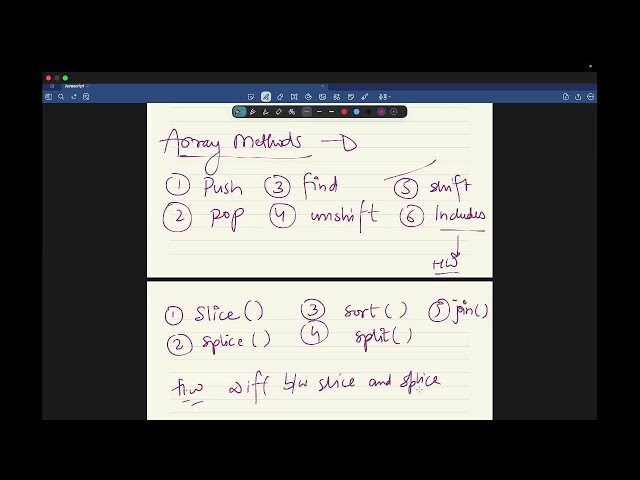 Javascript
Array Methods →
① Push ③ find ⑤ shift
② pop ④ unshift ⑥ Includes
HW
① slice() ③ sort() ⑤ join()
② splice() ④ split()
h.w diff b/w slice and splice